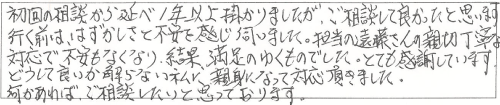 初回の相談から延べ1年以上掛かりましたが、ご相談して良かったと思います。
行く前は、はずかしさと不安を感じ伺いました。担当の遠藤さんの親切丁寧な
対応で不安もなくなり、結果、満足のゆくものでした。とても感謝しています。
どうして良いか解らない私に、親身になって対応頂きました。
何かあれば、ご相談したいと思っております。